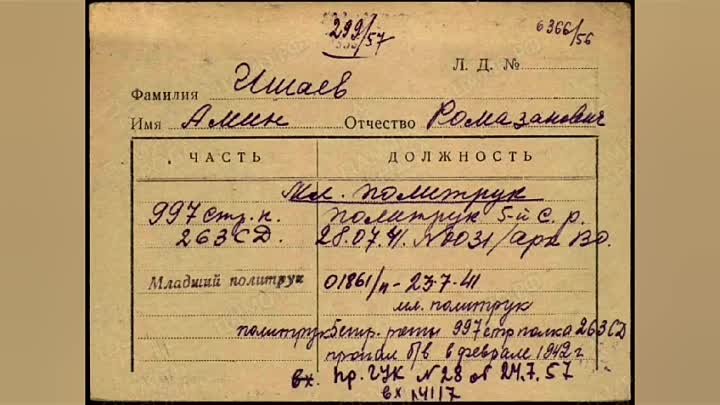 299/57
6366/56
Л. Д. №
Фамилия Ишаев
Имя Амин Отчество Ромазанович
ЧАСТЬ ДОЛЖНОСТЬ
Мл. политрук
997 стр. п. политрук 5-й с. р.
263 СД. 28.07.41. №0031/арх ВО.
Младший политрук 01861/п - 23.7.41
мл. политрук
политрук 5 стр. роты 997 стр полка 263 СД
пропал б/в в феврале 1942 г
вх. пр. ГУК №28 24.7.57
вх 14117